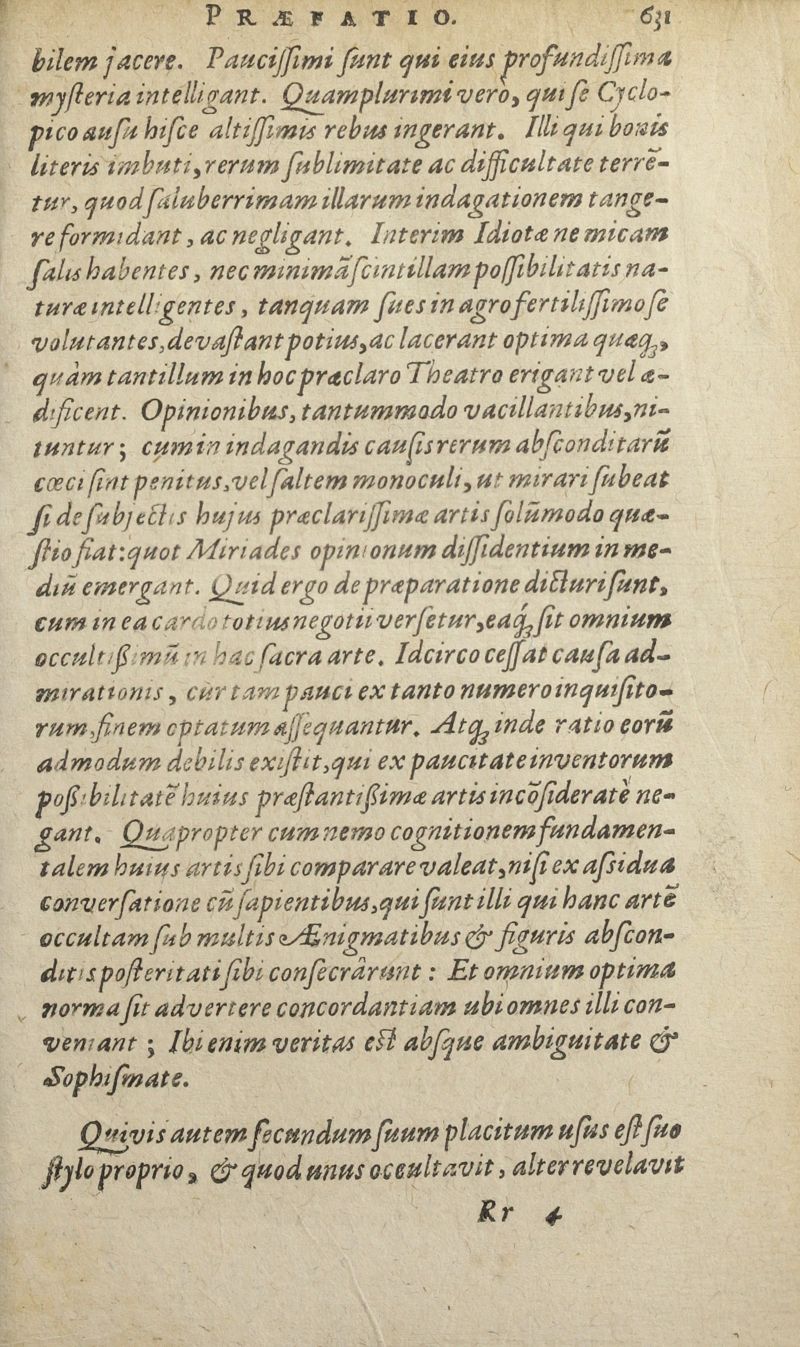 PRÆFATIO. 631
bilem jacere. Pauciſſimi ſunt qui eius profundiſſima
myſteria intelligant. Quamplurimi verò, qui ſe Cyclo-
pico auſu hiſce altiſſimis rebus ingerant. Illi qui bonis
literis imbuti, rerum ſublimitate ac difficultate terrē-
tur, quod ſaluberrimam illarum indagationem tange-
re formidant, ac negligant. Interim Idiotæ ne micam
ſalis habentes, nec minimā ſcintillam poſſibilitatis na-
turæ intelligentes, tanquam ſues in agro fertiliſſimo ſe
volutantes, devaſtant potius, ac lacerant optima quæq;,
quàm tantillum in hoc præclaro Theatro erigant vel æ-
dificent. Opinionibus, tantummodo vacillantibus, ni-
tuntur; cum in indagandis cauſis rerum abſconditarū
cœci ſint penitus, vel ſaltem monoculi, ut mirari ſubeat
ſi de ſubjectis hujus præclariſſimæ artis ſolūmodo quæ-
ſtio fiat: quot Miriades opinionum diſſidentium in me-
diū emergant. Quid ergo de præparatione dicturi ſunt,
cum in ea cardo totius negotii verſetur, eaq́; ſit omnium
occultißimū in hac ſacra arte. Idcirco ceſſat cauſa ad-
mirationis, cur tam pauci ex tanto numero inquiſito-
rum, finem optatum aſſequantur. Atq; inde ratio eorū
admodum debilis exiſtit, qui ex paucitate inventorum
poßibilitatē huius præſtantißimæ artis incōſideratè ne-
gant. Quapropter cum nemo cognitionem fundamen-
talem huius artis ſibi comparare valeat, niſi ex aſsidua
converſatione cū ſapientibus, qui ſunt illi qui hanc artē
occultam ſub multis Ænigmatibus & figuris abſcon-
ditis poſteritati ſibi conſecrârunt: Et omnium optima
norma ſit advertere concordantiam ubi omnes illi con-
veniant; Ibi enim veritas eſt abſque ambiguitate &
Sophiſmate.
Quivis autem ſecundum ſuum placitum uſus eſt ſuo
ſtylo proprio, & quod unus occultavit, alter revelavit
Rr 4